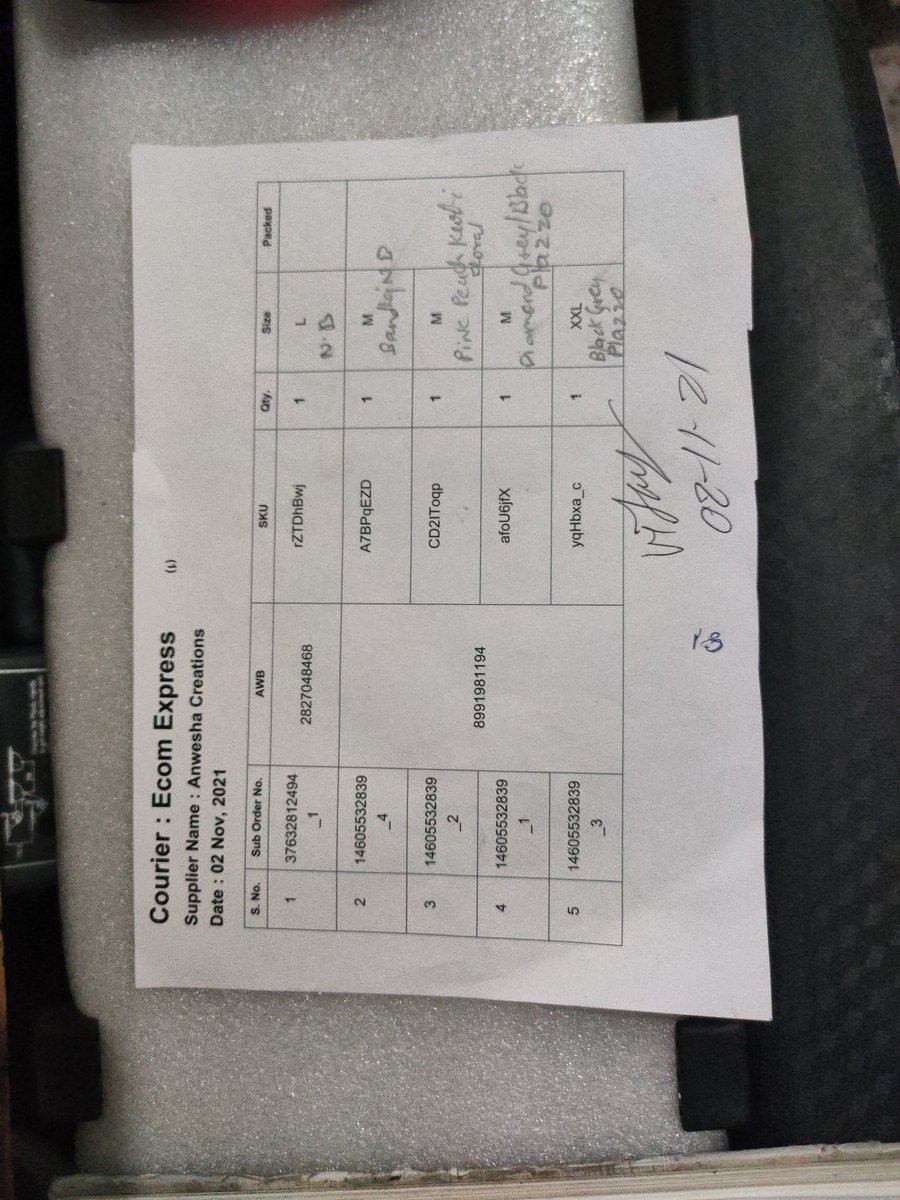 Courier : Ecom Express (1)
Supplier Name : Anwesha Creations
Date : 02 Nov, 2021
S. No. Sub Order No. AWB SKU Qty. Size Packed
1 37632812494_1 2827048468 rZTDhBwj 1 L
N.B
2 14605532839_4 8991981194 A7BPqEZD 1 M
3 14605532839_2 CD2IToqp 1 M
Pink Peach
4 14605532839_1 afoU6jfX 1 M
Diamond Grey/Black
Plazzo
5 14605532839_3 yqHbxa_c 1 XXL
Black Grey
Plazzo
08-11-21